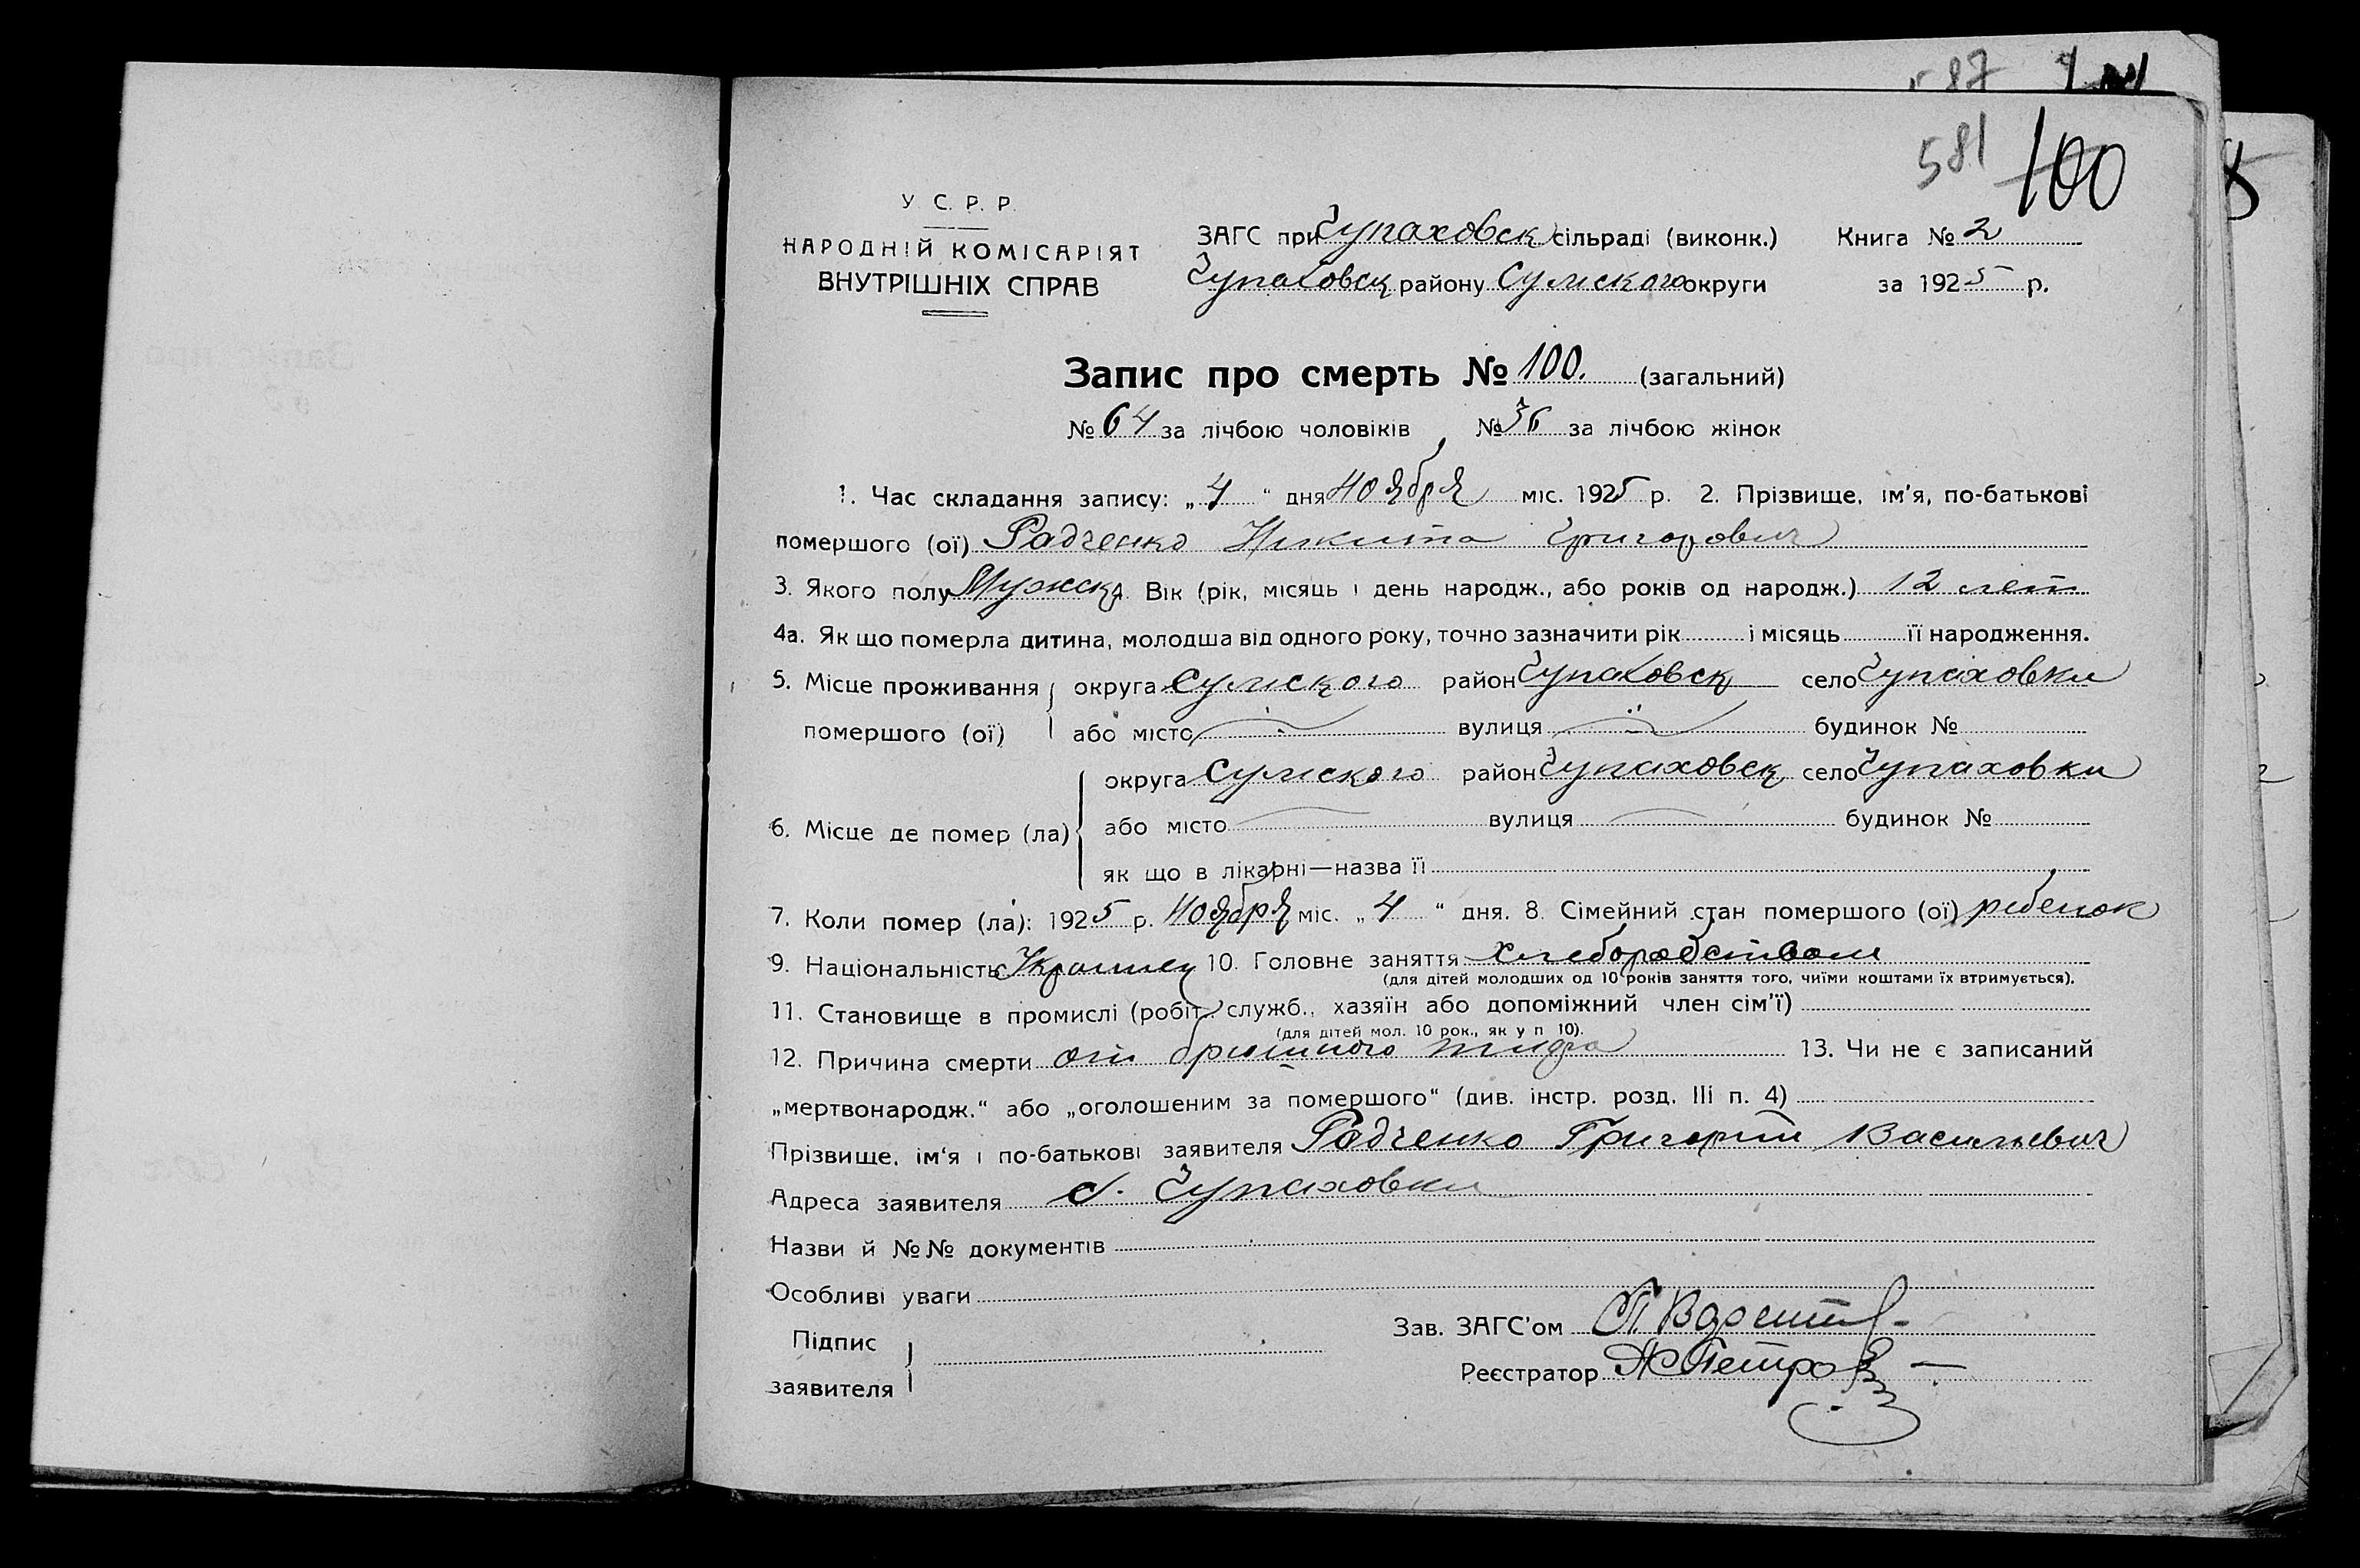 587
581 100
У С. Р. Р.
НАРОДНІЙ КОМІСАРІЯТ
ВНУТРІШНІХ СПРАВ
ЗАГС при Чупаховск сільраді (виконк.) Книга № 2
Чупаховск району Сумского округи за 1925 р.
Запис про смерть № 100. (загальний)
№ 64 за лічбою чоловіків № 36 за лічбою жінок
1. Час складання запису: „4“ дня Ноября міс. 1925 р. 2. Прізвище, ім'я, по-батькові
помершого (ої) Радченко Никита Григорович
3. Якого полу Мужск 4. Вік (рік, місяць і день народж., або років од народж.) 12 лет
4а. Як що померла дитина, молодша від одного року, точно зазначити рік і місяць її народження.
5. Місце проживання помершого (ої) округа Сумского район Чупаховск село Чупаховки
або місто вулиця будинок №
6. Місце де помер (ла) округа Сумского район Чупаховск село Чупаховки
або місто вулиця будинок №
як що в лікарні—назва її
7. Коли помер (ла): 1925 р. Ноября міс. „4“ дня. 8. Сімейний стан помершого (ої) ребенок
9. Національність Украинец 10. Головне заняття хлеборобством
(для дітей молодших од 10 років заняття того, чиїми коштами їх втримується).
11. Становище в промислі (робіт., служб., хазяїн або допоміжний член сім'ї)
(для дітей мол. 10 рок., як у п 10).
12. Причина смерти от брюшного тифа 13. Чи не є записаний
„мертвонародж.“ або „оголошеним за помершого“ (див. інстр. розд. III п. 4)
Прізвище, ім'я і по-батькові заявителя Радченко Григорий Васильевич
Адреса заявителя с. Чупаховки
Назви й №№ документів
Особливі уваги
Підпис заявителя
Зав. ЗАГС'ом
Реєстратор Петров